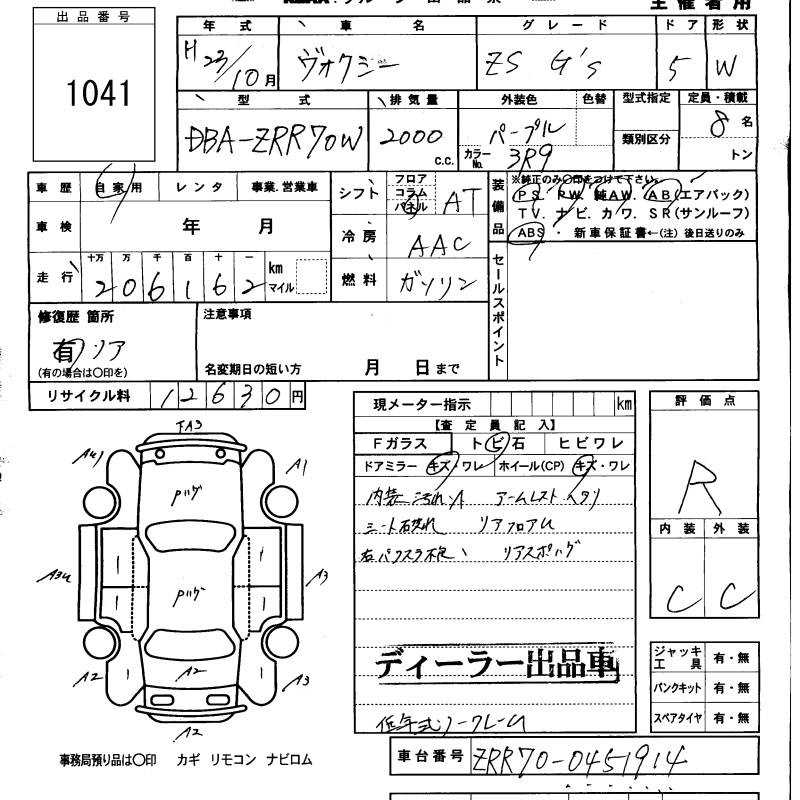 出品番号
1041
主催者用
年式 車名 グレード ドア 形状
H 23/10月 ヴォクシー ZS G's 5 W
型式 排気量 外装色 色替 型式指定 定員・積載
DBA-ZRR70W 2000 C.C. パープル 8名
カラーNo. 3R9 類別区分 トン
車歴 自家用 レンタ 事業.営業車
シフト フロア コラム パネル AT
装備品 ※純正のみ〇印をつけて下さい。
PS. PW. 純AW. AB(エアバック)
TV. ナビ. カワ. SR(サンルーフ)
ABS ・ 新車保証書←(注)後日送りのみ
車検 年 月
冷房 AAC
走行 十万 万 千 百 十 一 km マイル
206162
燃料 ガソリン
セールスポイント
修復歴 箇所 注意事項
有 リア
(有の場合は〇印を) 名変期日の短い方 月 日まで
リサイクル料 12630円
現メーター指示 km
【査定員記入】
Fガラス トビ石 ヒビワレ
ドアミラー キズ・ワレ ホイール(CP) キズ・ワレ
内装 汚れ アームレスト ヘタリ
シート リアフロア
リアスポ
ディーラー出品車
低年式ノークレーム
評価点
R
内装 外装
C C
ジャッキ工具 有・無
パンクキット 有・無
スペアタイヤ 有・無
A1
A3
A2
A3
A2
A2
事務局預り品は〇印 カギ リモコン ナビロム
車台番号 ZRR70-0451914